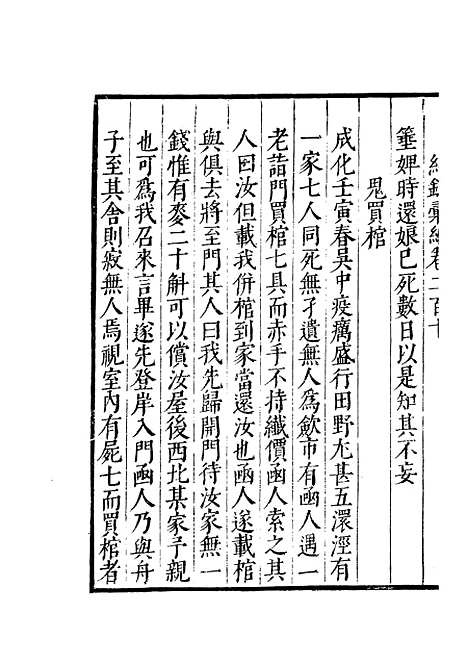 紀錄彙編卷二百十
箠婢時還娘已死數日以是知其不妄
鬼買棺
成化壬寅春吳中疫癘盛行田野尤甚五澴涇有
一家七人同死無孑遺無人為歛市有凾人遇一
老詣門買棺七具而赤手不持纖價凾人索之其
人曰汝但載我併棺到家當還汝也凾人遂載棺
與俱去將至門其人曰我先歸開門待汝家無一
錢惟有麥二十斛可以償汝屋後西北某家予親
也可為我召來言畢遂先登岸入門凾人乃與舟
子至其舍則寂無人焉視室內有屍七而買棺者